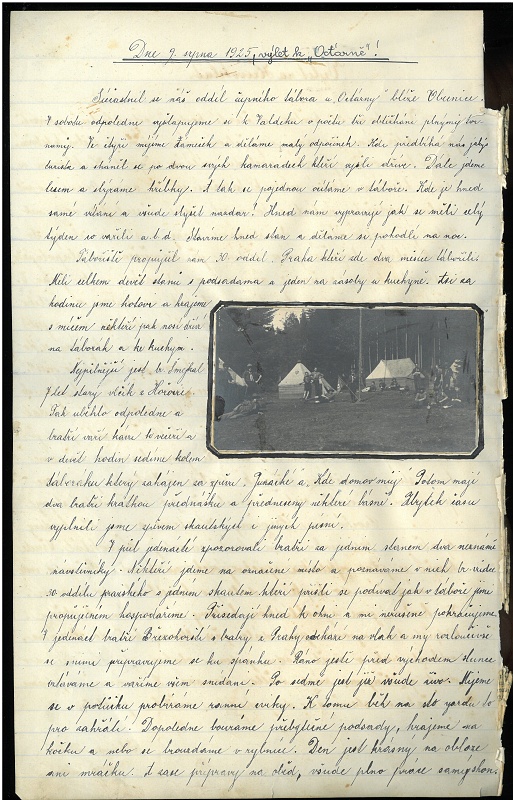 Dne 9. srpna 1925, výlet k „Octárně"!
Súčastnil se náš oddíl čupního tábora u „Octárny" blíže Obecnice.
V sobotu odpoledne vyšlapujeme si k Valdeku v počtu tří obtíženi plnými tor-
nami. Ve čtyři míjíme zámeček a děláme malý odpočinek. Kde předbíhá nás jakýs
turista a sháněl se po dvou svých kamarádech kteří vyšli dříve. Dále jdeme
lesem a sbíráme hříbky. A tak se pojednou ocitáme v táboře. Kde je hned
samé vítání a všude slyšet nazdar! Hned nám vypravují jak se měli celý
týden co vařili a.t.d. Stavíme hned stan a děláme si pohodlí na noc.
Tábořiště propůjčil nám 30. oddíl. Praha kteří zde dva měsíce tábořili.
Měli celkem devět stanů s podsadama a jeden na zásoby a kuchyně. Asi za
hodinu jsme hotovi a hrajeme
s míčem někteří pak nosí dříví
na táborák a ke kuchyni.
Nejpilnější jest b. Smejkal
7 let starý vlčík z Hořovic.
Tak uběhlo odpoledne a
bratři vaří kávu to večeři a
v devět hodin sedíme kolem
táboráku který zahájen za zpěvu. Junácké a, Kde domov můj. Potom mají
dva bratři krátkou přednášku a předneseny některé básně. Zbytek času
vyplnili jsme zpěvem skautských i jiných písní.
V půl jedenácté zpozorovali bratři za jedním stanem dva neznámé
návštěvníky. Někteří jdeme na označené místo a poznáváme v nich br. vůdce
30. oddílu pražského s jedním skautem kteří přišli se podívat jak v táboře jimi
propůjčeném hospodaříme. Přisedají hned k ohni a mi nerušeně pokračujeme.
V jedenáct bratři Březohorští s bratry z Prahy odchází na vlak a my rozloučivše
se s nimi připravujeme se ku spánku. Ráno ještě před východem slunce
vstáváme a vaříme všem snídani. Po sedmé jest již všude živo. Myjeme
se v potůčku probíráme ranní cviky. K tomu běh na sto yardů to
pro zahřátí. Dopoledne bouráme přebytečné podsady, hrajeme na
kočku a nebo se brouzdáme v rybníce. Den jest krásný na obloze
ani mráčku. A zase přípravy na oběd, všude plno práce samý shon.